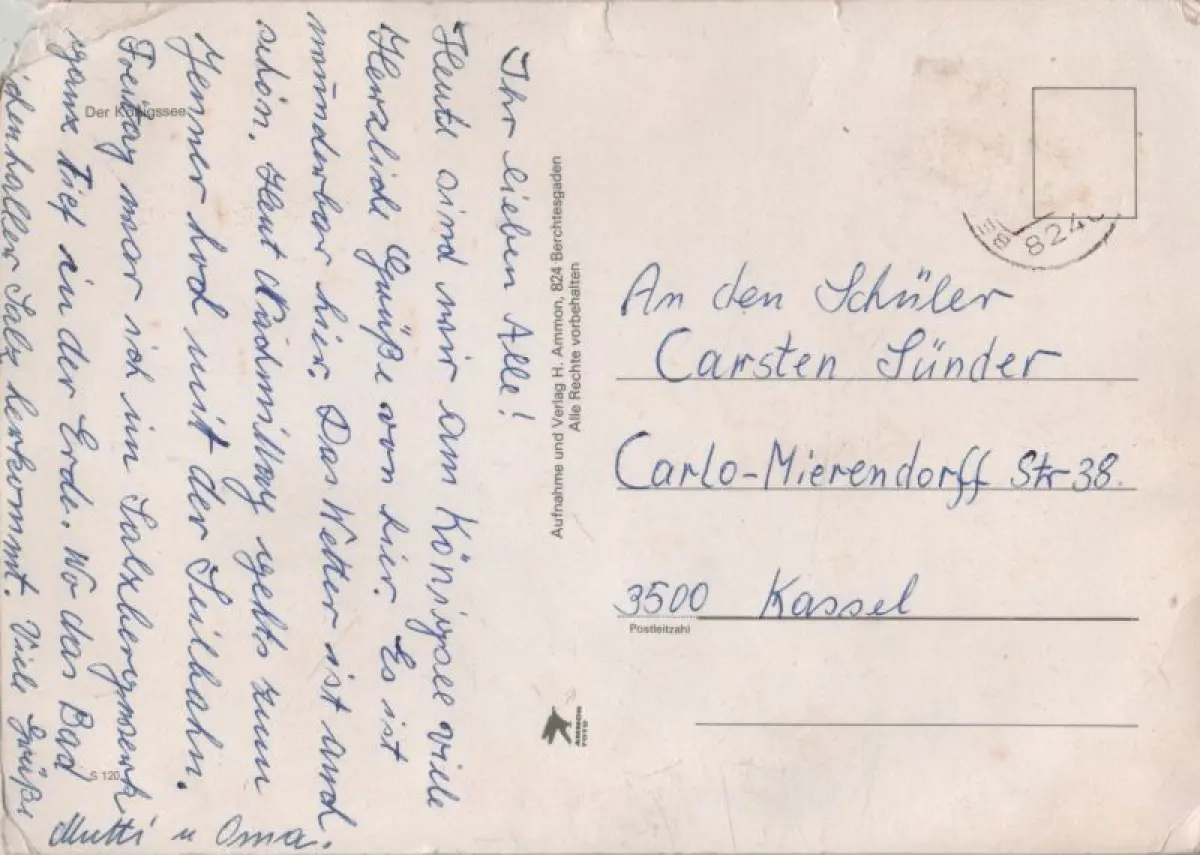 Der Königssee
Ihr lieben Alle!
Heute sind wir am Königsee viele
Herzliche Grüße von hier. Es ist
wunderbar hier. Das Wetter ist auch
schön. Heut Nachmittag gehts zum
Jenner hoch mit der Seilbahn.
Freitag war ich im Salzbergwerk
ganz tief in der Erde. Wo das Bad
Salz herkommt. Viele Grüße
Mutti u Oma.
S 120
Aufnahme und Verlag H. Ammon, 824 Berchtesgaden
Alle Rechte vorbehalten
AMMON
FOTO
824
An den Schüler
Carsten Sünder
Carlo-Mierendorff Str 38.
3500 Kassel
Postleitzahl